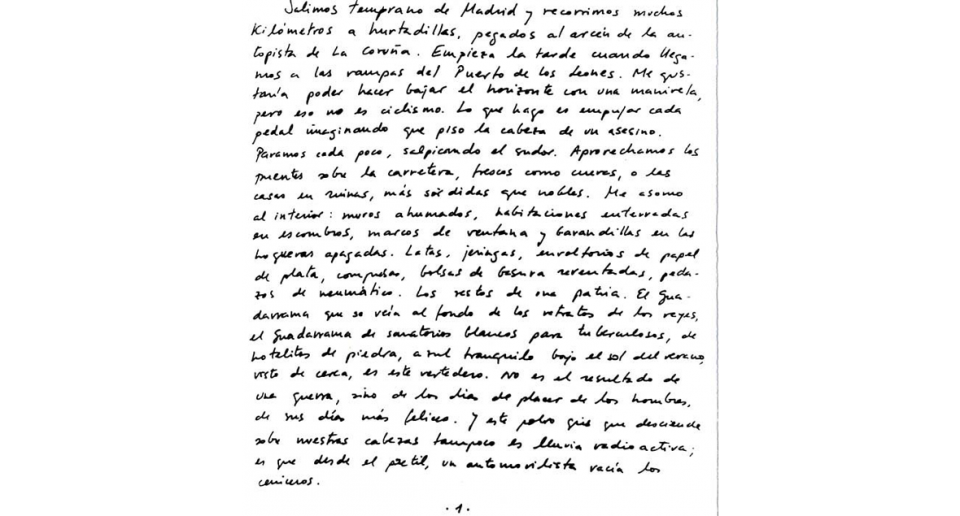 Salimos temprano de Madrid y recorrimos muchos
kilómetros a hurtadillas, pegados al arcén de la au-
topista de La Coruña. Empieza la tarde cuando llega-
mos a las rampas del Puerto de los Leones. Me gus-
taría poder hacer bajar el horizonte con una manivela,
pero eso no es ciclismo. Lo que hago es empujar cada
pedal imaginando que piso la cabeza de un asesino.
Paramos cada poco, salpicando el sudor. Aprovechamos los
puentes sobre la carretera, frescos como cuevas, o las
casas en ruinas, más sórdidas que nobles. Me asomo
al interior: muros ahumados, habitaciones enterradas
en escombros, marcos de ventana y barandillas en las
hogueras apagadas. Latas, jeringas, envoltorios de papel
de plata, compresas, bolsas de basura reventadas, peda-
zos de neumático. Los restos de una patria. El Gua-
darrama que se veía al fondo de los retratos de los reyes,
el Guadarrama de sanatorios blancos para tuberculosos, de
hotelitos de piedra, azul tranquilo bajo el sol del verano,
visto de cerca, es este vertedero. No es el resultado de
una guerra, sino de los días de placer de los hombres,
de sus días más felices. Y este polvo gris que desciende
sobre nuestras cabezas tampoco es lluvia radioactiva;
es que desde el pretil, un automovilista vacía los
ceniceros.
. 1 .